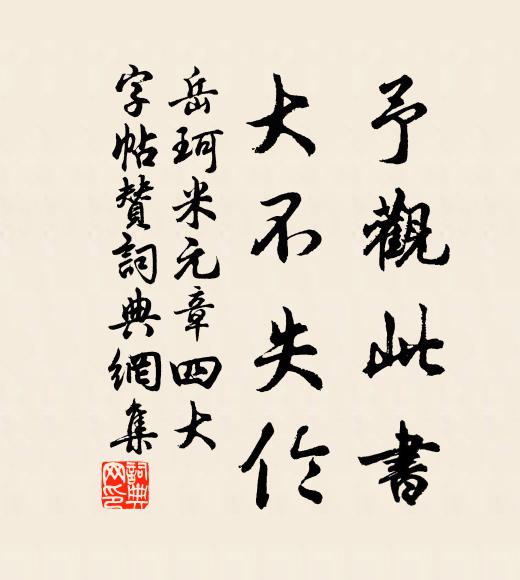 予觀此書
大不失伶
岳珂米元章四大
字帖贊詞典網集
詞典网印